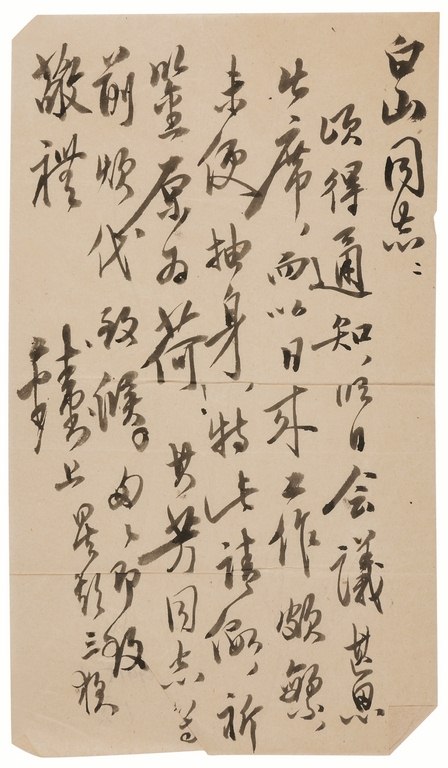 白山同志：
頃得通知，明日会議甚
出席，而以日来工作頗繁，
未便抽身，特此請假，祈
鑒原为荷 其芳同志
前煩代致候。匆匆即致
敬禮
上 星期三夜